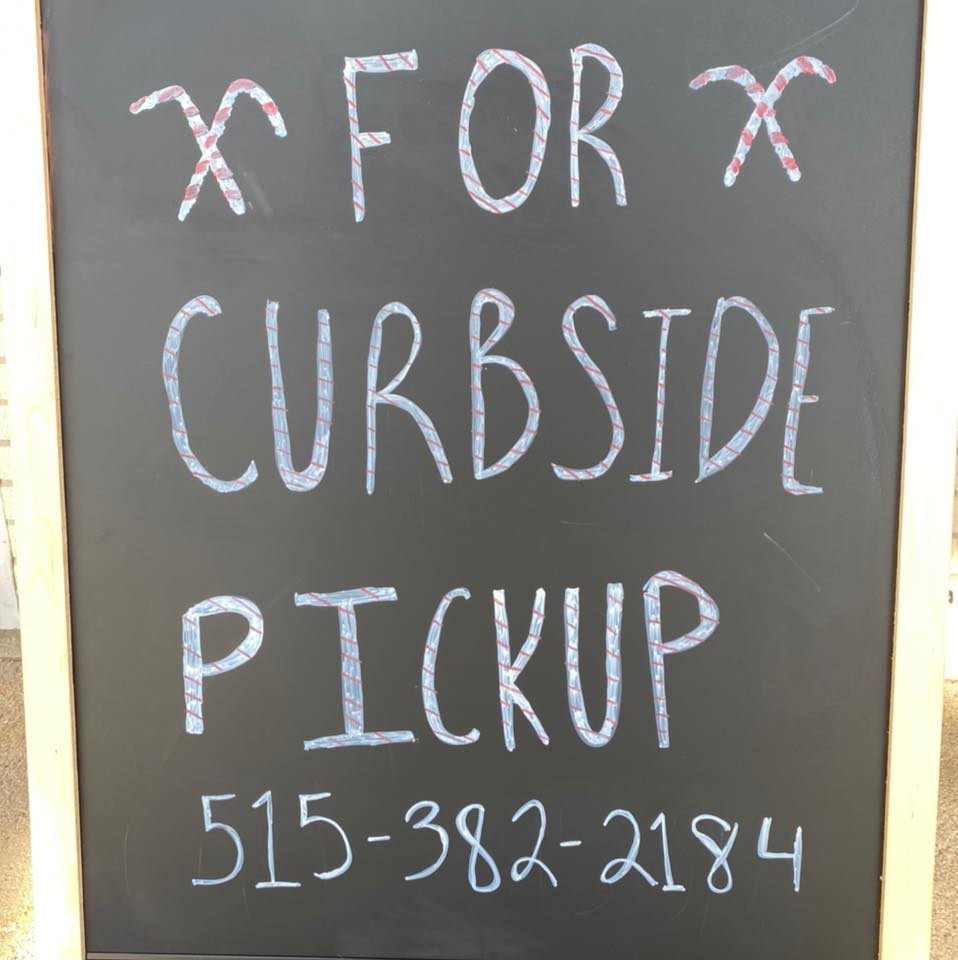 FOR
CURBSIDE
PICKUP
515-382-2184